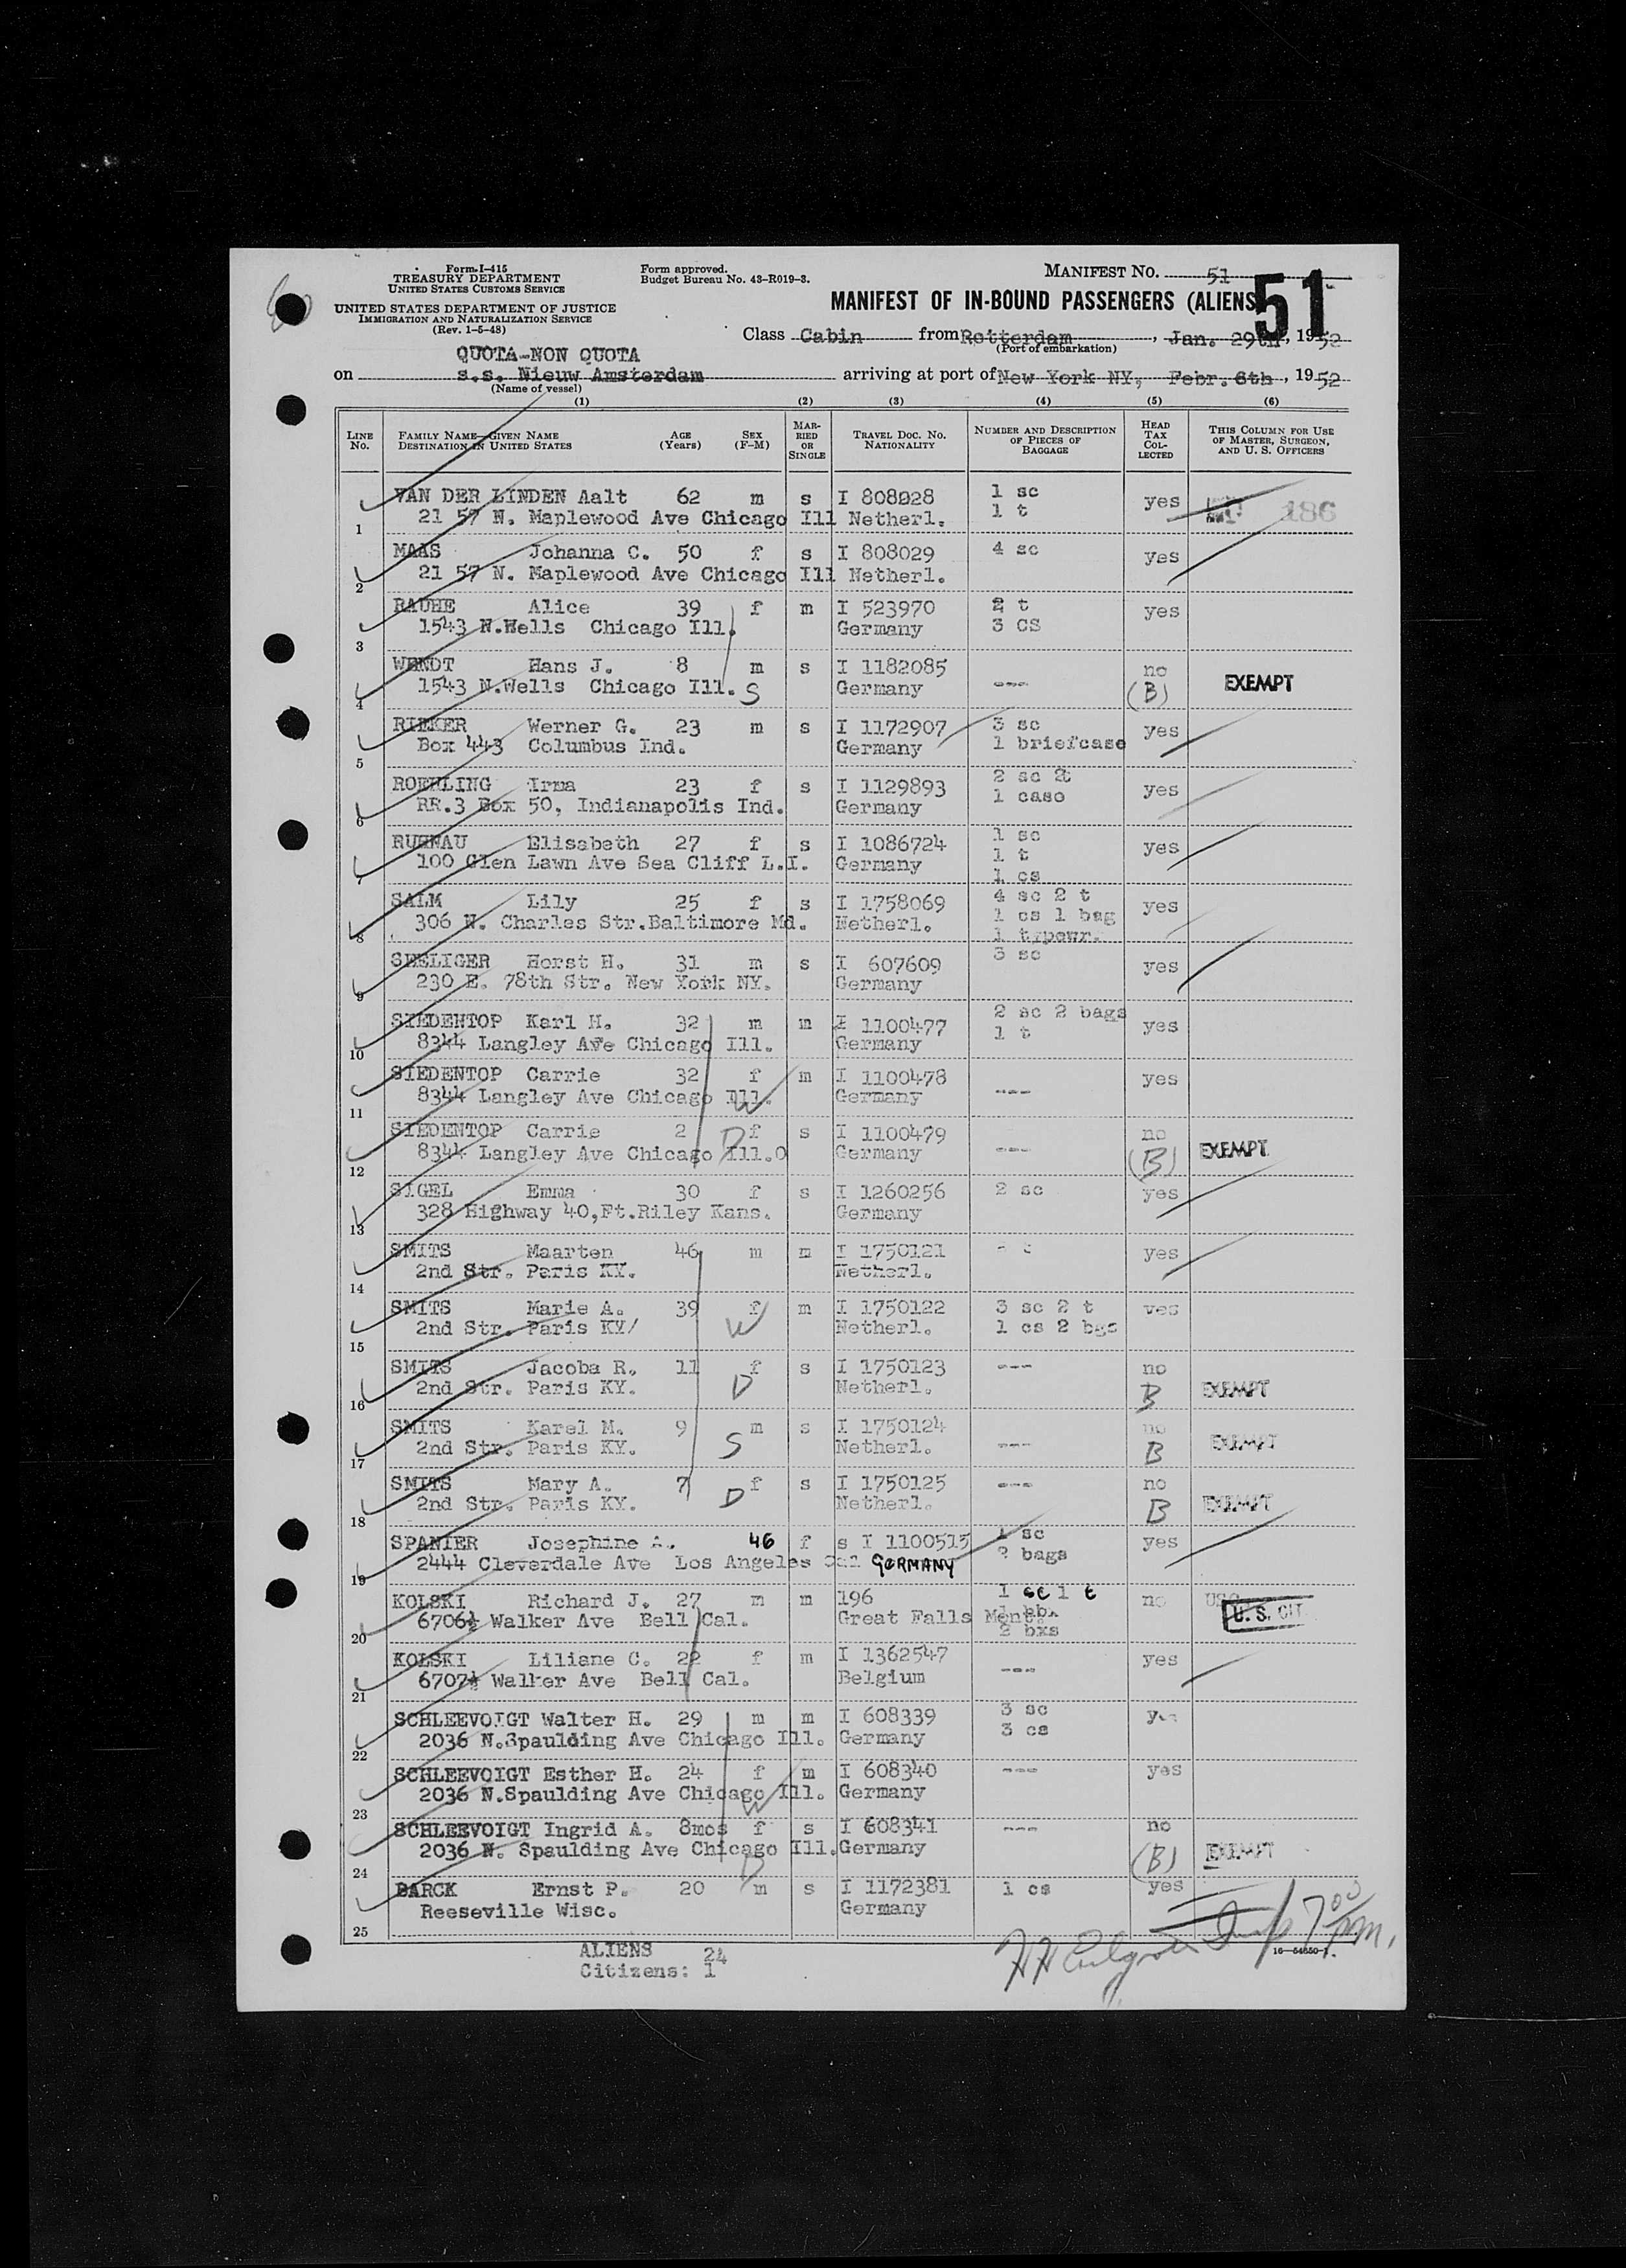 Form I-415
TREASURY DEPARTMENT
UNITED STATES CUSTOMS SERVICE
UNITED STATES DEPARTMENT OF JUSTICE
IMMIGRATION AND NATURALIZATION SERVICE
(Rev. 1-5-48)
Form approved.
Budget Bureau No. 43-R019-3.
MANIFEST NO. 51
MANIFEST OF IN-BOUND PASSENGERS (ALIENS
51
Class Cabin from Rotterdam, Jan. 29th, 1952
(Port of embarkation)
QUOTA-NON QUOTA
on s.s. Nieuw Amsterdam arriving at port of New York NY, Febr. 6th, 1952
(Name of vessel)
(1) (2) (3) (4) (5) (6)
LINE No. FAMILY NAME—GIVEN NAME DESTINATION IN UNITED STATES AGE (Years) SEX (F-M) MARRIED OR SINGLE TRAVEL DOC. NO. NATIONALITY NUMBER AND DESCRIPTION OF PIECES OF BAGGAGE HEAD TAX COLLECTED THIS COLUMN FOR USE OF MASTER, SURGEON, AND U. S. OFFICERS
VAN DER LINDEN Aalt 62 m s I 808028 1 sc yes 186
1 21 57 N. Maplewood Ave Chicago Ill Netherl. 1 t
MAAS Johanna C. 50 f s I 808029 4 sc yes
2 21 57 N. Maplewood Ave Chicago Ill Netherl.
RAUHE Alice 39 f m I 523970 2 t yes
3 1543 N.Wells Chicago Ill. Germany 3 CS
WENDT Hans J. 8 m s I 1182085 no
4 1543 N.Wells Chicago Ill. S Germany --- (B) EXEMPT
RIEKER Werner G. 23 m s I 1172907 3 sc yes
5 Box 443 Columbus Ind. Germany 1 briefcase
ROEHLING Irma 23 f s I 1129893 2 sc yes
6 RR.3 Box 50, Indianapolis Ind. Germany 1 case
RUHNAU Elisabeth 27 f s I 1086724 1 sc yes
7 100 Glen Lawn Ave Sea Cliff L.I. Germany 1 t
1 cs
SALM Lily 25 f s I 1758069 4 sc 2 t yes
8 306 N. Charles Str.Baltimore Md. Netherl. 1 cs 1 bag
1 typewr.
SEELIGER Horst H. 31 m s I 607609 3 sc yes
9 230 E. 78th Str. New York NY. Germany
SIEDENTOP Karl H. 32 m m I 1100477 2 sc 2 bags yes
10 8344 Langley Ave Chicago Ill. Germany 1 t
SIEDENTOP Carrie 32 f m I 1100478 yes
11 8344 Langley Ave Chicago Ill. W Germany ---
SIEDENTOP Carrie 2 D f s I 1100479 no
12 8344 Langley Ave Chicago Ill.O Germany --- (B) EXEMPT
SIGEL Emma 30 f s I 1260256 2 sc yes
13 328 Highway 40,Ft.Riley Kans. Germany
SMITS Maarten 46 m m I 1750121 t yes
14 2nd Str. Paris KY. Netherl.
SMITS Marie A. 39 f m I 1750122 3 sc 2 t yes
15 2nd Str. Paris KY/ W Netherl. 1 cs 2 bgs
SMITS Jacoba R. 11 f s I 1750123 --- no
16 2nd Str. Paris KY. D Netherl. B EXEMPT
SMITS Karel M. 9 m s I 1750124 no
17 2nd Str. Paris KY. S Netherl. --- B EXEMPT
SMITS Mary A. 7 f s I 1750125 --- no
18 2nd Str. Paris KY. D Netherl. B EXEMPT
SPANIER Josephine A. 46 f s I 1100515 1 sc yes
19 2444 Cleverdale Ave Los Angeles Cal GERMANY 2 bags
KOLSKI Richard J. 27 m m 196 1 sc 1 t no USC
20 6706½ Walker Ave Bell Cal. Great Falls Mont. U. S. CIT.
2 bxs
KOLSKI Liliane C. 22 f m I 1362547 yes
21 6707½ Walker Ave Bell Cal. Belgium ---
SCHLEEVOIGT Walter H. 29 m m I 608339 3 sc yes
22 2036 N.Spaulding Ave Chicago Ill. Germany 3 cs
SCHLEEVOIGT Esther H. 24 f m I 608340 --- yes
23 2036 N.Spaulding Ave Chicago Ill. W Germany
SCHLEEVOIGT Ingrid A. 8mos f s I 608341 --- no
24 2036 N. Spaulding Ave Chicago Ill. D Germany (B) EXEMPT
BARCK Ernst P. 20 m s I 1172381 1 cs yes
25 Reeseville Wisc. Germany
ALIENS 24
Citizens: 1
Insp 7 00 P.M.